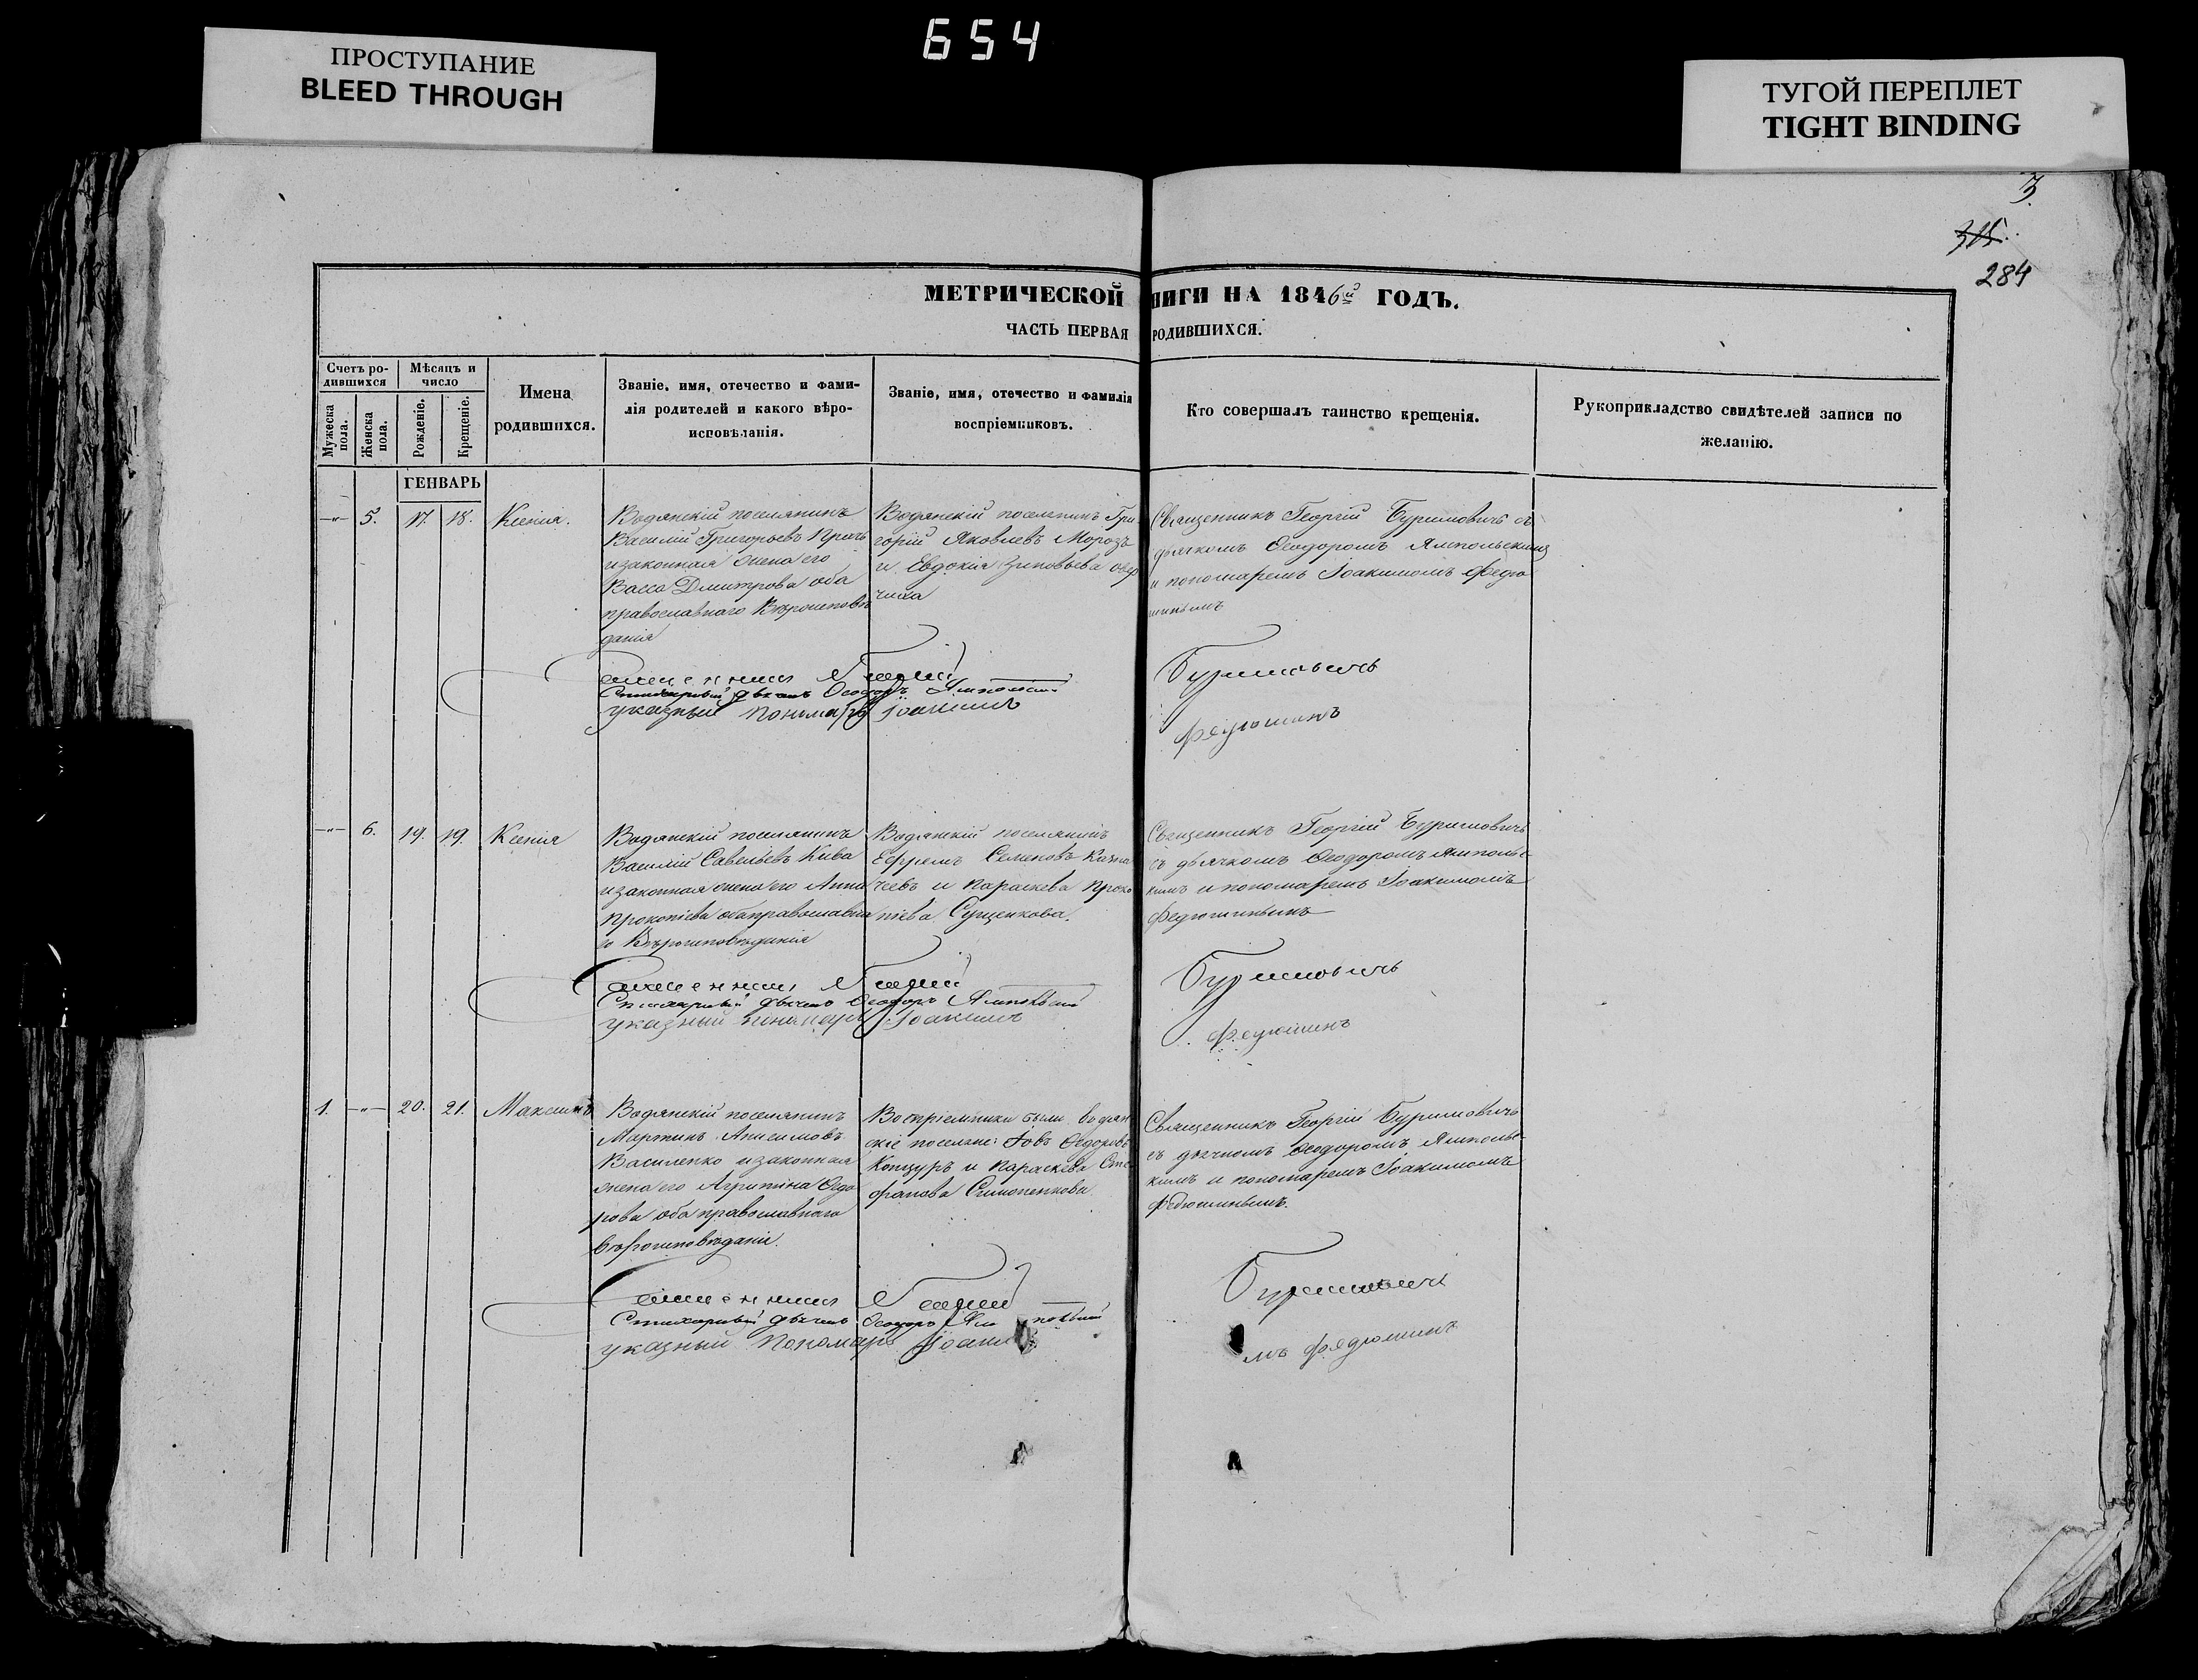 654
ПРОСТУПАНИЕ
BLEED THROUGH
ТУГОЙ ПЕРЕПЛЕТ
TIGHT BINDING
3.
315.
284
МЕТРИЧЕСКОЙ НИГИ НА 1846й ГОДЪ.
ЧАСТЬ ПЕРВАЯ РОДИВШИХСЯ.
Счетъ ро-
дившихся
Мѣсяцъ и
число
Мужеска
пола.
Женска
пола.
Рожденіе.
Крещеніе.
Имена
родившихся.
Званіе, имя, отечество и фами-
лія родителей и какого вѣро-
исповѣданія.
Званіе, имя, отечество и фамилія
воспріемниковъ.
Кто совершалъ таинство крещенія.
Рукоприкладство свидѣтелей записи по
желанію.
ГЕНВАРЬ
—"— 5. 17. 18. Ксенія.
Водянскій поселянинъ
Василій Григорьевъ
и законная жена его
Васса Дмитрова оба
православнаго Вѣроисповѣ
данія
Водянскій поселянинъ Гри
горій Яковлевъ Морозъ
и Евдокія Зиновьева
Священникъ Георгій Буримовичъ съ
дьячкомъ Ѳеодоромъ Ямпольскимъ
и пономаремъ Іоакимомъ Федю
шинымъ
Священникъ Георгій Буримовичъ
Стихарный дьячекъ Ѳеодоръ Ямпольскій
указный пономарь Іоакимъ Федюшинъ
—"— 6. 19. 19. Ксенія
Водянскій поселянинъ
Василій Савельевъ Кива
и законная жена его Анна
Прокопіева оба православна
го Вѣроисповѣданія
Водянскій поселянинъ
Ефремъ Семеновъ Казна
чеевъ и Параскева Проко
піева Сущенкова.
Священникъ Георгій Буримовичъ
съ дьячкомъ Ѳеодоромъ Ямпольс-
кимъ и пономаремъ Іоакимомъ
Федюшинымъ
Священникъ Георгій Буримовичъ
Стихарный дьячекъ Ѳеодоръ Ямпольскій
указный пономарь Іоакимъ Федюшинъ
1. —"— 20. 21. Максимъ
Водянскій поселянинъ
Мартинъ Анисимовъ
Василенко и законная
жена его Агрипина Ѳедо
рова оба православнаго
вѣроисповѣданія.
Воспріемники были водян
скіе поселяне: Іовъ Ѳедоровъ
Концуръ и Параскева Сте
фанова Симоненкова.
Священникъ Георгій Буримовичъ
съ дьячкомъ Ѳеодоромъ Ямпольс-
кимъ и пономаремъ Іоакимомъ
Федюшинымъ.
Священникъ Георгій Буримовичъ
Стихарный дьячекъ Ѳеодоръ Ям польскій
указный пономарь Іоаки мъ Федюшинъ